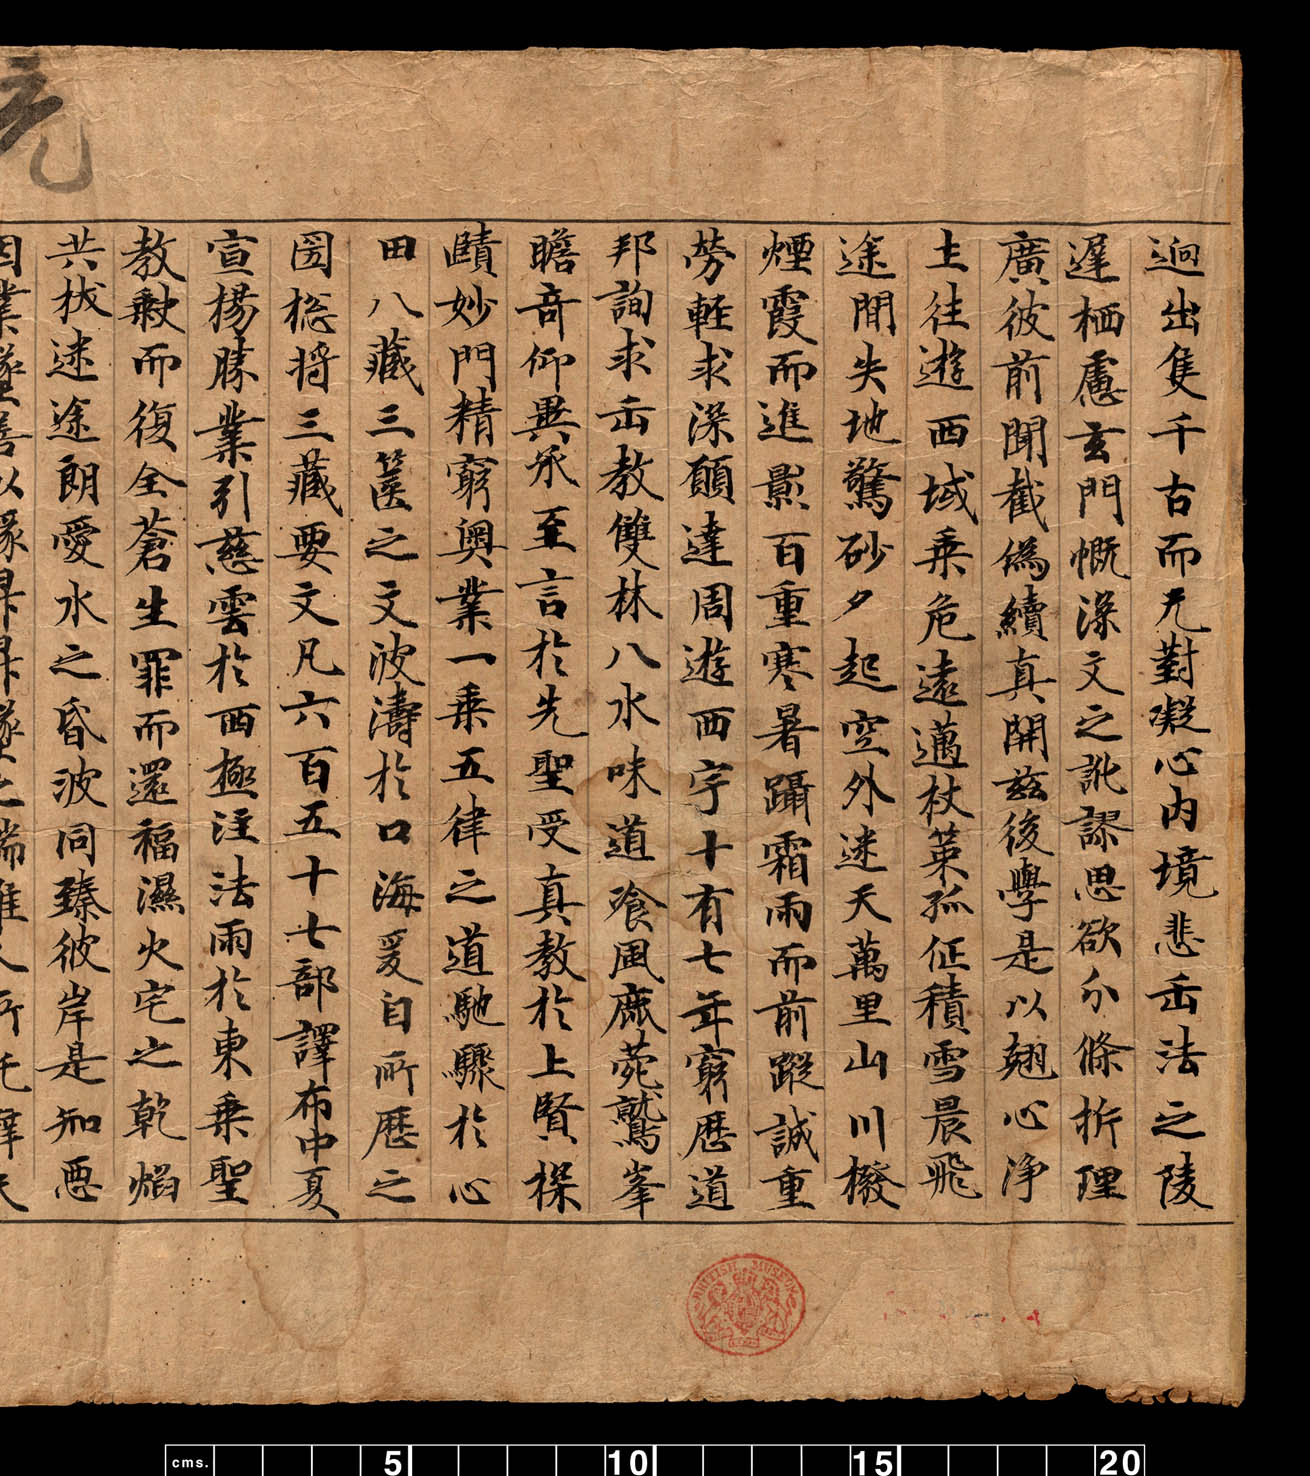 迥出隻千古而无對凝心內境悲缶法之陵
遲栖慮玄門慨深文之訛謬思欲分條析理
廣彼前聞截偽續真開茲後學是以翹心淨
土往遊西域乗危遠邁杖策孤征積雪晨飛
途間失地驚砂夕起空外迷天萬里山川撥
煙霞而進影百重寒暑躡霜雨而前蹤誠重
勞輕求深願達周遊西宇十有七年窮歷道
邦詢求缶教雙林八水味道飡風鹿菀鷲峯
瞻奇仰異承至言於先聖受真教於上賢探
賾妙門精窮奧業一乗五律之道馳驟於心
田八藏三篋之文波濤於口海爰自所歷之
圀捴將三藏要文凡六百五十七部譯布中夏
宣楊勝業引慈雲於西極注法雨於東乗聖
教缺而復全蒼生罪而還福濕火宅之乾焰
共拔迷途朗愛水之昏波同臻彼岸是知惡
因業墜善以緣昇昇墜之端惟人所託
元
BRITISH MUSEUM
cms. 5 10 15 20